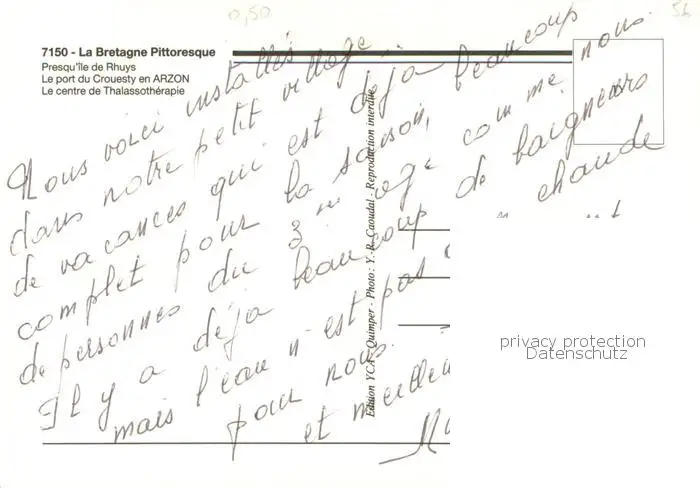 0,50
56
7150 - La Bretagne Pittoresque
Presqu'île de Rhuys
Le port du Crouesty en ARZON
Le centre de Thalassothérapie
Nous voici installés
dans notre petit village
de vacances qui est déjà beaucoup
complet pour la saison,
de personnes du 3 me age comme nous.
Il y a déjà beaucoup de baigneurs
mais l'eau n'est pas chaude
pour nous.
et
Edition YCA - Quimper - Photo : Y.-R. Caoudal - Reproduction interdite
privacy protection
Datenschutz